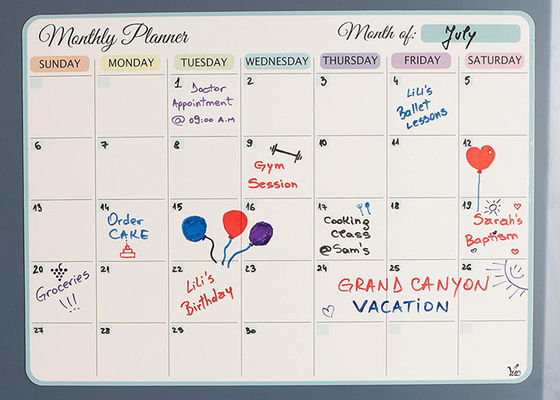 Monthly Planner
Month of: July
SUNDAY MONDAY TUESDAY WEDNESDAY THURSDAY FRIDAY SATURDAY
1 2 3 4 5
Doctor
Appointment
@ 09:00 A.M
LiLi's
Ballet
Lessons
6 7 8 9 10 11 12
Gym
Session
13 14 15 16 17 18 19
Order
CAKE
Cooking
Class
@Sam's
Sarah's
Baptism
20 21 22 23 24 25 26
Groceries
!!!
LiLi's
Birthday
GRAND CANYON
VACATION
27 28 29 30